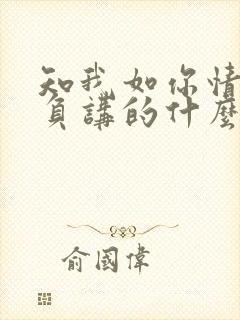 知我如你情
負講的什麼
俞國偉